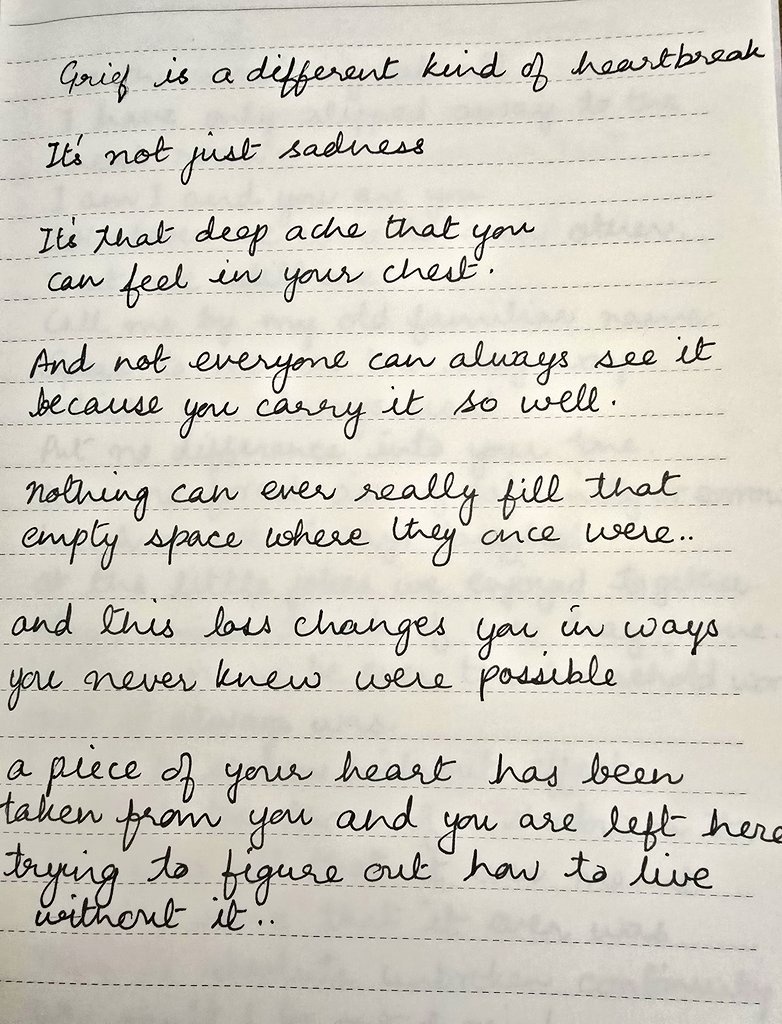 Grief is a different kind of heartbreak
It's not just sadness
It's that deep ache that you
can feel in your chest.
And not everyone can always see it
because you carry it so well.
nothing can ever really fill that
empty space where they once were..
and this loss changes you in ways
you never knew were possible
a piece of your heart has been
taken from you and you are left here
trying to figure out how to live
without it..